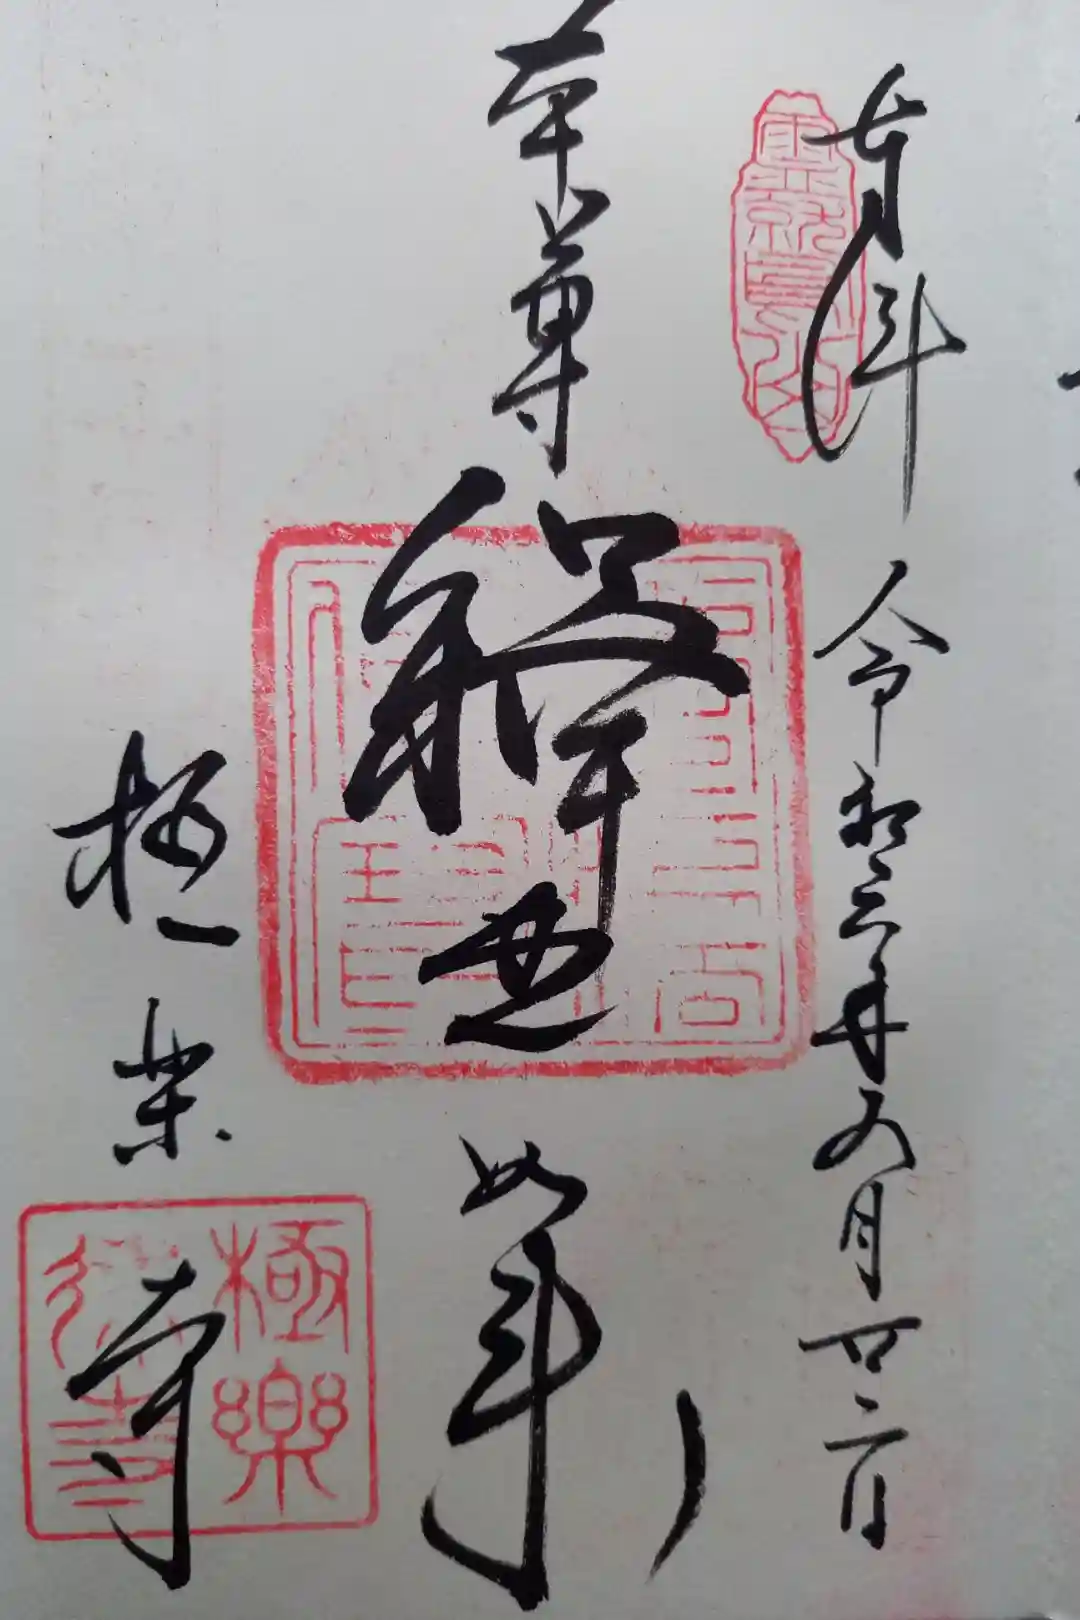 奉拝
霊鷲山
令和三年五月廿二日
本尊
釋迦如来
極楽寺
極樂律寺